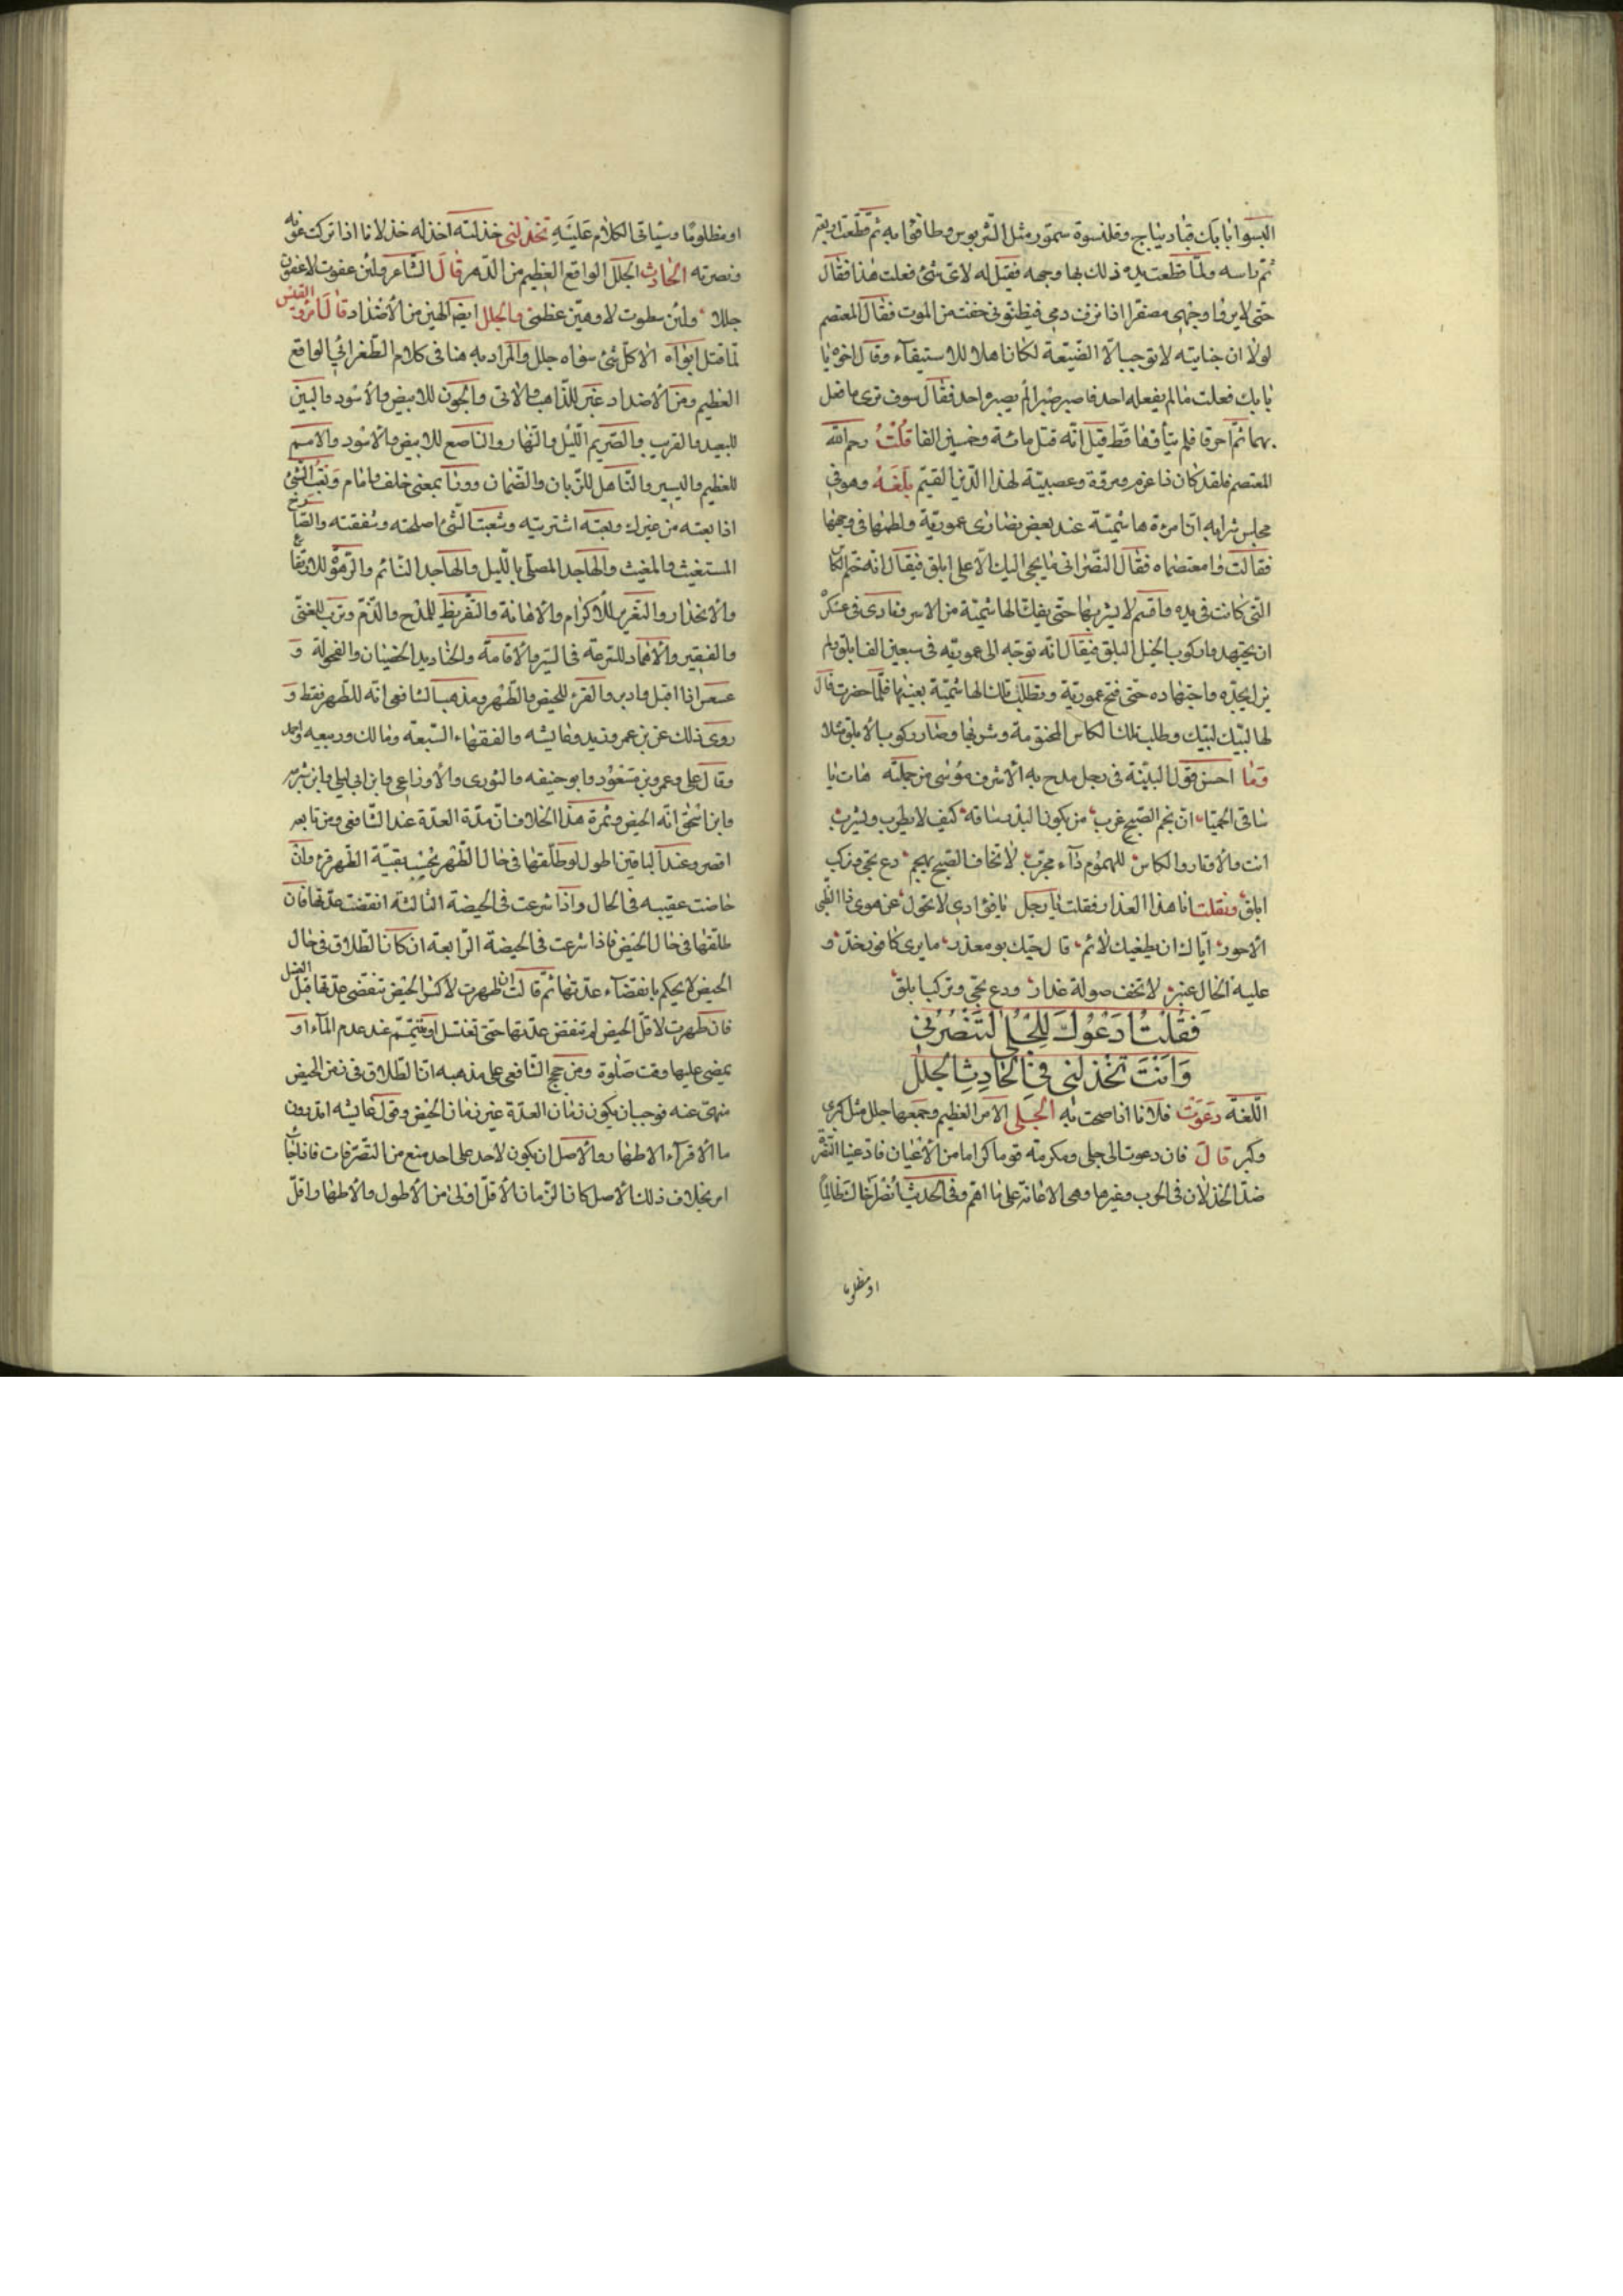 البسوا بابك قباديباج وقلنسوة سمور مثل الشربوس وطافوا به ثم قطعت اربعته
ثم راسه ولما قطعت يده ذلك بها وجهه فقيل له لاى شئ فعلت هذا فقال
حتى لا يروا وجهى مصفرا اذا نزف دمى فيظنونى خفت من الموت فقال المعتصم
لولا ان جنايته لا توجب الا الضيعة لكان اهلا للاستبقآء وقال اخوه يا
بابك فعلت ما لم يفعله احد فاصبر صبرا لم يصبره احد فقال سوف ترى ما فعل
بهما ثم احرقا فلم يتأوها قط قيل انه قتل مائة وخمسين الفا قلت رحم الله
المعتصم فلقد كان ذا عزم وعصبية لهذا الدين القيم بلغه وهو فى
مجلس شرابه ان امرءة هاشمية عند بعض نصارى عمورية ولطمها فى وجهها
فقالت وامعتصماه فقال النصرانى ما يجى اليك الا على ابلق فيقال انه ختم الكاس
التى كانت فى يده واقسم لا يشربها حتى يفك الهاشمية من الاسر ونادى فى عسكره
ان يجتهد وا ركوب الخيل البلق فيقال انه توجه الى عموريه فى سبعين الف ابلق ولم
يزل بجده واجتهاده حتى فتح عمورية وتطلب تلك الهاشمية بعينها فلما حضرت قال
لها لبيك لبيك وطلب تلك الكاس المختومة وشربها وصار ركوب الابلق مثلا
وما احسن قول البديه فى رجل مدح به الاشرف موسى من جملته هات يا
ساقى الحميا ان نجم الصبح غرب من يكون البدر ساقه كيف لا يطرب ويشرب
انت والاوتار والكاس للهموم دآء مجرب لا تخاف الصبح يهجم دع يجى ويركب
ابلق ونقلت انا هذا العذار فقلت يا رجل يا فؤادى لا تحول عن هوى ذا الظبى
الاحور اياك ان يطغيك لائم قال حبيبك بو معذر ما يرى كافور خد و
عليه الخال عنبر لا تخف صولة عذار ودع يجى وتركب ابلق
فَقُلْتُ اَدْعُوكَ لِلْجُلَّى لِتَنْصُرَنِى
وَاَنْتَ تَخْذُلُنِى فِى الْحَادِثِ الْجَلَلِ
اللغة دعوت فلانا اذا صحت به الجلى الامر العظيم وجمعها جلل مثل كبرى
وكبر قال فان دعوت الى جلى ومكرمة قوما كراما من الاعيان فادعينا النصر
ضد الخذلان فى الحرب وغيرها وهى الاعانة على ما اهم وفى الحديث انصر اخاك ظالما
او مظلوما
او مظلوما وسياقى الكلام عليه تخذلنى خذلته اخذله خذلانا اذا تركت عونه
ونصرته الحادث الجلل الواقع العظيم من الدهر قال الشاعر ولئن عفوت لاعفون
جللا ولئن سطوت لاوهين عظمى والجلل ايضا الهين من الاضداد قال امرؤ القيس
لما قتل ابواه الا كل شئ سواه جلل والمراد به هنا فى كلام الطغرائى الواقع
العظيم ومن الاضداد غبر للذاهب والاتى والجون للابيض والاسود والبين
للبعيد والقريب والصريم الليل والنهار والناصع للابيض والاسود والامم
للعظيم واليسير والناهل للريان والظمان وورآ بمعنى خلف وامام وبعت الشئ
اذا بعته من غيرك وبعته اشتريته وشعبت الشئ اصلحته وشققته والصارخ
المستغيث والمغيث والهاجد المصلى بالليل والهاجد النائم والرهو للارتفاع
والانحدار والتعزير للاكرام والاهانة والتقريظ للمدح والذم وترب للغنى
والفقير والاهماد للسرعة فى السير والاقامة والخناذيد الخصيان والفحولة و
عسعس اذا اقبل وادبر والقرء للحيض والطهر ومذهب الشافعى انه للطهر فقط و
روى ذلك عن بن عمر وزيد وعايشه والفقهاء السبعة ومالك وربيعه واحمد
وقال على وعمر وبن مسعود وابو حنيفه والثورى والاوزاعى وابن ابى ليلى وابن شبرمه
وابن اسحق انه الحيض وثمرة هذا الخلاف ان مدة العدة عند الشافعى ومن تابعه
اقصر وعند الباقين اطول لو طلقها فى حال الطهر يحسب بقية الطهر قرء وان
حاضت عقيبه فى الحال واذا شرعت فى الحيضة الثالثة انقضت عدتها فان
طلقها فى حال الحيض فاذا شرعت فى الحيضة الرابعة ان كان الطلاق فى حال
الحيض لا يحكم بانقضآء عدتها ثم قالت ان طهرت لاكثر الحيض تنقضى عدتها قبل الغسل
فان طهرت لاقل الحيض لم تنقض عدتها حتى تغتسل او تتيمم عند عدم المآء او
يمضى عليها وقت صلوة ومن حجج الشافعى على مذهبه ان الطلاق فى زمن الحيض
منهى عنه فوجب ان يكون زمان العدة غير زمان الحيض وقول عايشه اتدرون
ما الاقرآء الاطهار والاصل ان يكون لاحد على احد منع من التصرفات فان
امر بخلاف ذلك الاصل كان الزمان الاقل اولى من الاطول والاطهار اقل